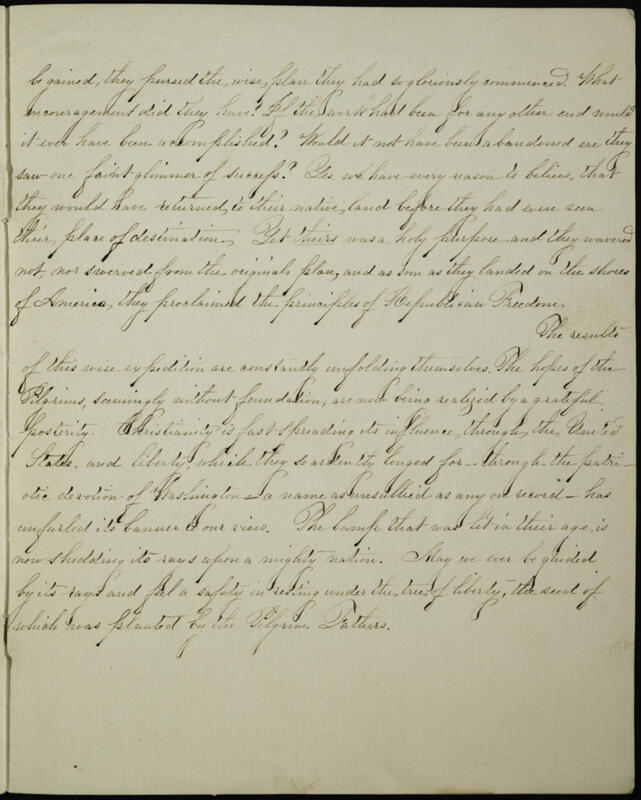 be gained, they pursed the, wise, plan they had so gloriously commenced. What
encouragement did they have? If the work had been for any other end would
it ever have been accomplished? Would it not have been abandoned ere they
saw one faint glimmer of success? Yes, we have every reason to believe, that
they would have returned, to their native, land before they had even seen
their, place of destination. Yet theirs was a holy purpose and they wavered
not, nor swerved from the, original plan, and as soon as they landed on the shores
of America, they proclaimed the principles of Republican Freedom.
The results
of this wise expedition are constantly unfolding themselves. The hopes of the
Pilgrims, seemingly without foundation, are now being realized by a grateful
posterity. Christianity is fast spreading its influence, through, the, United
States, and liberty, which they so ardently longed for - through the patri-
otic devotion of Washington - a name as unsullied as any on record - has
unfurled its banner to our view. The lamp that was lit in their age, is
now shedding its rays upon a mighty nation. May we ever be guided
by its rays and feel a safety in resting under the tree of liberty, the seed of
which was planted by the Pilgrim Fathers.